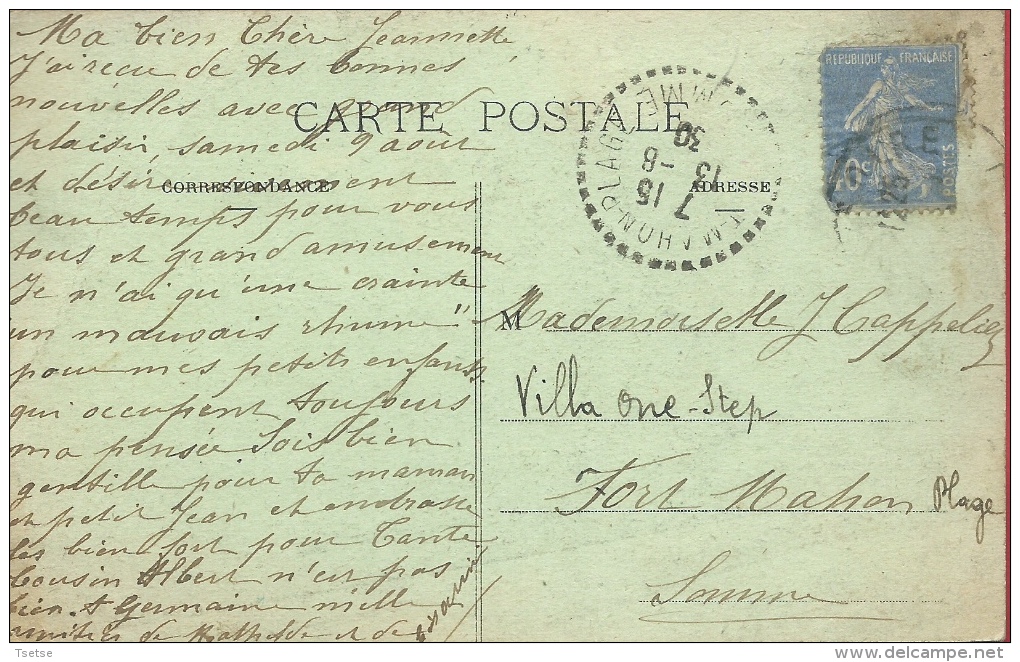 Ma bien Chère Jeannette
J'ai reçu de tes bonnes
nouvelles avec grand
plaisir, samedi 9 août
et désir
beau temps pour vous
tous et grand amusement
Je n'ai qu'une crainte
un mauvais rhume "
pour mes petits enfants
qui occupent toujours
ma pensée Sois bien
gentille pour ta maman
et petit Jean et
les bien fort pour Tante
Cousin Albert n'est pas
bien. T Germaine mille
amitiés de Mathilde et de
CARTE POSTALE
CORRESPONDANCE
ADRESSE
REPUBLIQUE FRANÇAISE
POSTES
40c
MAHON-PLAGE
7 15
13 -8
30
M
Mademoiselle J Cappeliez
Villa One-Step
Fort Mahon Plage
Somme
Tsetse
http://www.delcampe.net